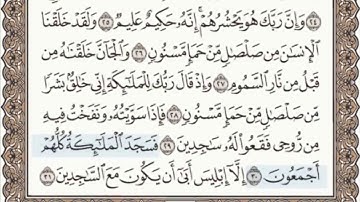 ٢٤ وَإِنَّ رَبَّكَ هُوَ يَحْشُرُهُمْ ۚ إِنَّهُ حَكِيمٌ عَلِيمٌ ٢٥ وَلَقَدْ خَلَقْنَا
الْإِنسَٰنَ مِن صَلْصَٰلٍ مِّنْ حَمَإٍ مَّسْنُونٍ ٢٦ وَالْجَانَّ خَلَقْنَٰهُ مِن
قَبْلُ مِن نَّارِ السَّمُومِ ٢٧ وَإِذْ قَالَ رَبُّكَ لِلْمَلَٰٓئِكَةِ إِنِّي خَٰلِقٌۢ بَشَرًا
مِّن صَلْصَٰلٍ مِّنْ حَمَإٍ مَّسْنُونٍ ٢٨ فَإِذَا سَوَّيْتُهُۥ وَنَفَخْتُ فِيهِ
مِن رُّوحِي فَقَعُوا۟ لَهُۥ سَٰجِدِينَ ٢٩ فَسَجَدَ الْمَلَٰٓئِكَةُ كُلُّهُمْ
أَجْمَعُونَ ٣٠ إِلَّآ إِبْلِيسَ أَبَىٰٓ أَن يَكُونَ مَعَ السَّٰجِدِينَ ٣١